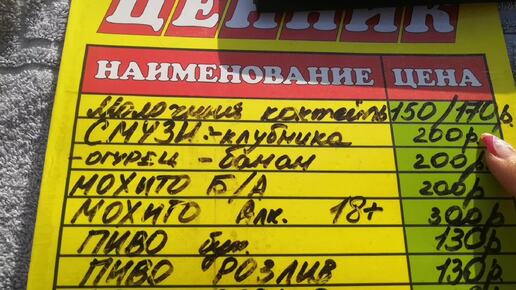 ЦЕННИК
НАИМЕНОВАНИЕ ЦЕНА
Молочный коктейль 150/170р
СМУЗИ:-клубника 200р
-огурец -банан 200р
МОХИТО Б/А 200р
МОХИТО Алк. 18+ 300р
ПИВО бут. 130р
ПИВО РОЗЛИВ 130р